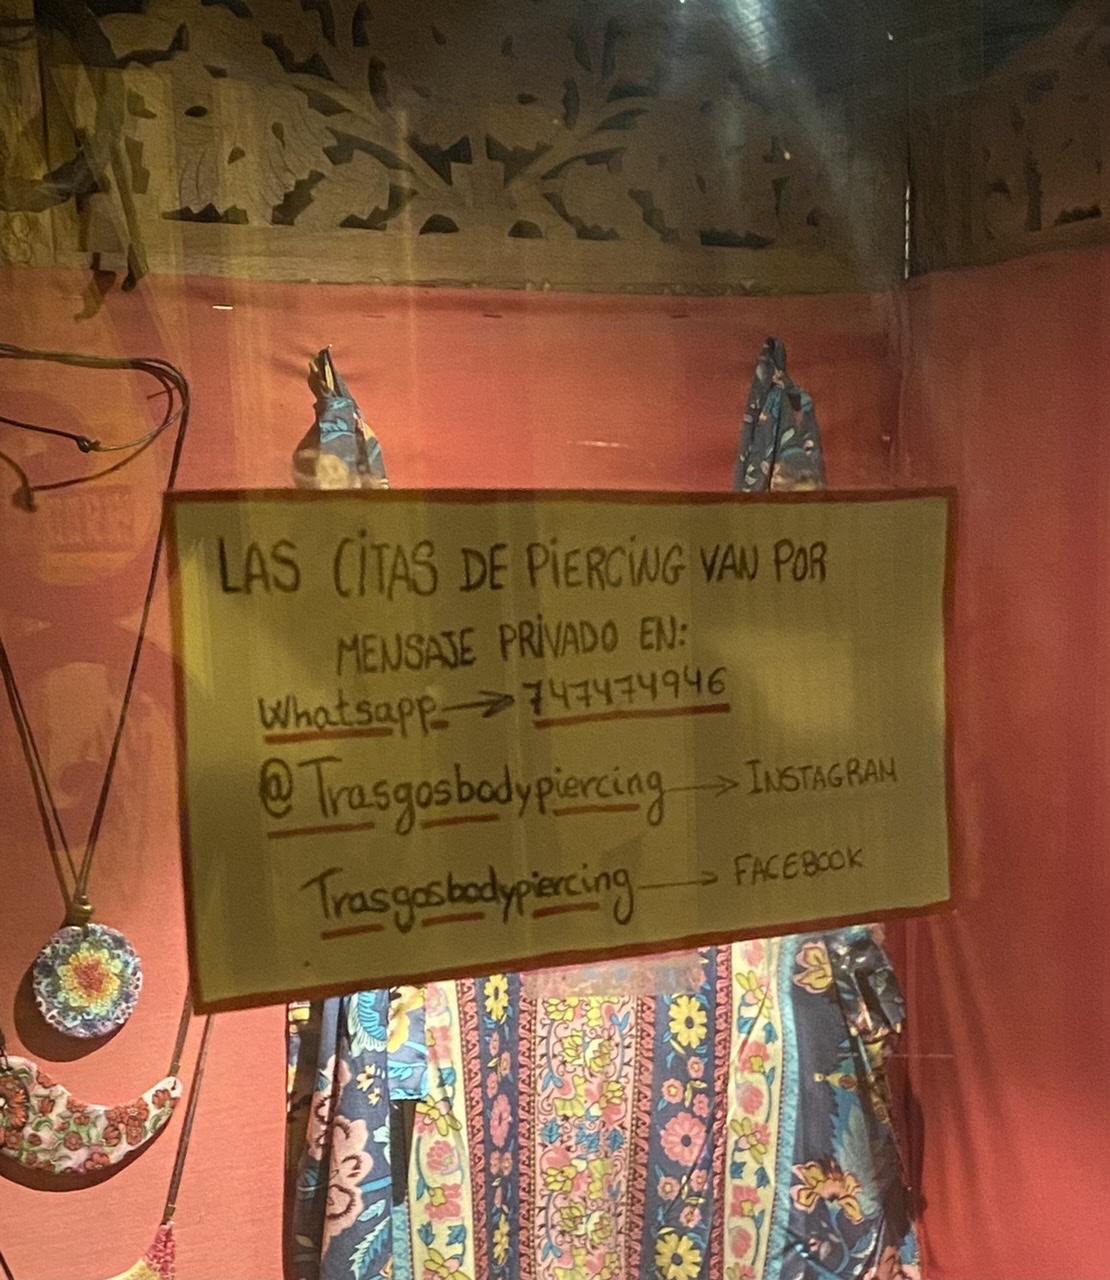 LAS CITAS DE PIERCING VAN POR
MENSAJE PRIVADO EN:
Whatsapp → 747474946
@Trasgosbodypiercing → INSTAGRAM
Trasgosbodypiercing → FACEBOOK